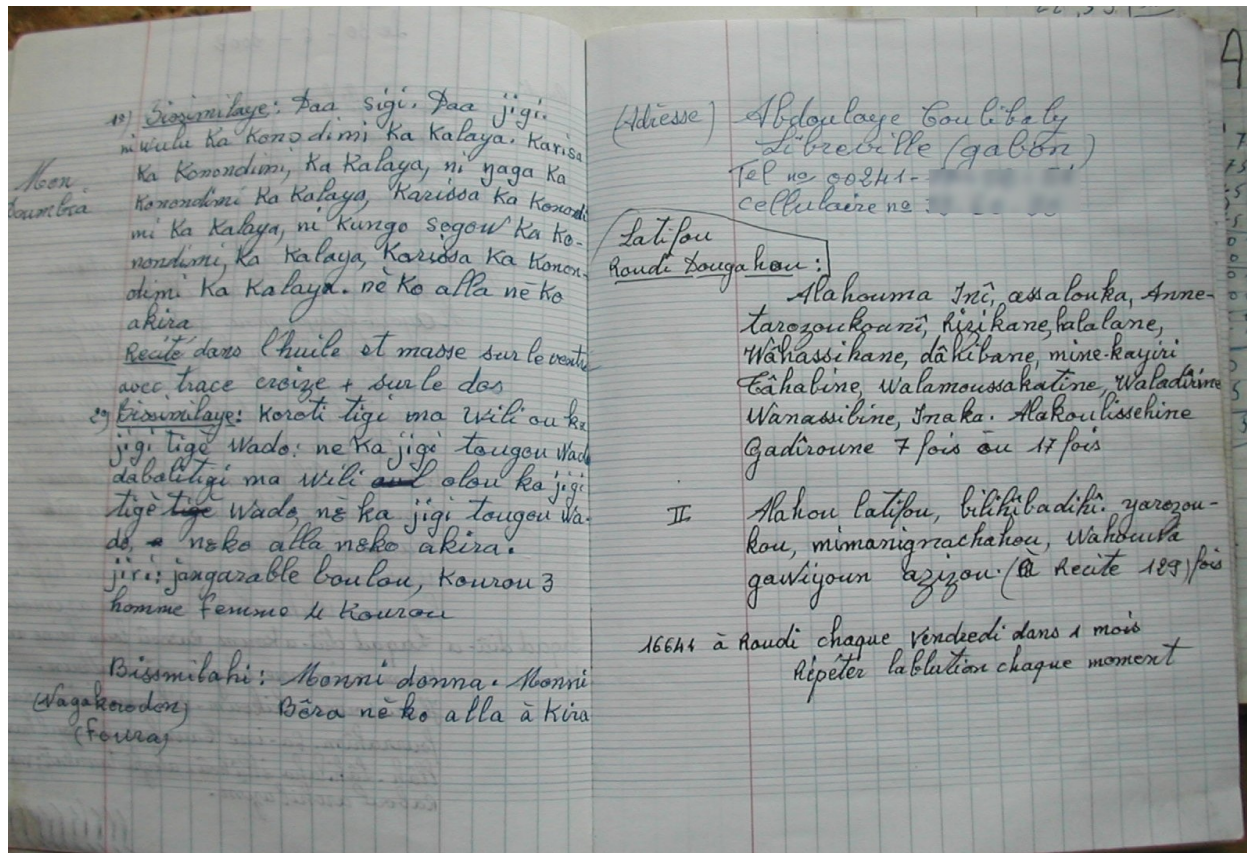 Mon
Soumbia
1º) Bissimilaye: Daa sigi. Daa jigi.
ni wulu Ka Konodimi Ka Kalaya. Karisa
Ka Konondimi, Ka Kalaya, ni yaga Ka
Konondimi Ka Kalaya, Karissa Ka Konondi
mi Ka Kalaya, ni Kungo sogow Ka Ko-
nondimi, Ka Kalaya, Karissa Ka Konon-
dimi Ka Kalaya. nè Ko alla nè Ko
akira
Recité dans l'huile et masse sur le ventre
avec trace croize + sur le dos
2º) Bissimilaye: Koroti tigi ma wili ou ka
jigi tigè Wado: ne Ka jigi tougou Wado
dabalitigi ma Wili olou ka jigi
tigè tigè Wado, nè ka jigi tougou Wa-
do, nèko alla nèko akira.
jiri: jangarable boulou, Kourou 3
homme femme 4 Kourou
Bissmilahi: Monni donna. Monni
(Nagakorodon) Bôra nè ko alla à Kira
(foura)
(Adresse) Abdoulaye Coulibaly
Libreville (gabon)
Tel nº 00241-
cellulaire nº
Latifou
Raudi Dougahou:
Alahouma Inî, assalouka, Anne-
tarozoukounî, Rizikane, halalane,
Wâhassihane, dâhibane, mine-kayiri
Tâhabine, Walamoussakatine, Waladîrine
Wanassibine, Inaka. Alakoulissehine
Gadîroune 7 fois ou 17 fois
II Alahou latifou, bilihibadihî. yarozou-
kou, mimanignachahou, Wahouwa
gawiyoun azizou. (à Recite 129) fois
16641 à Raudi chaque Vendredi dans 1 mois
Répéter lablution chaque moment